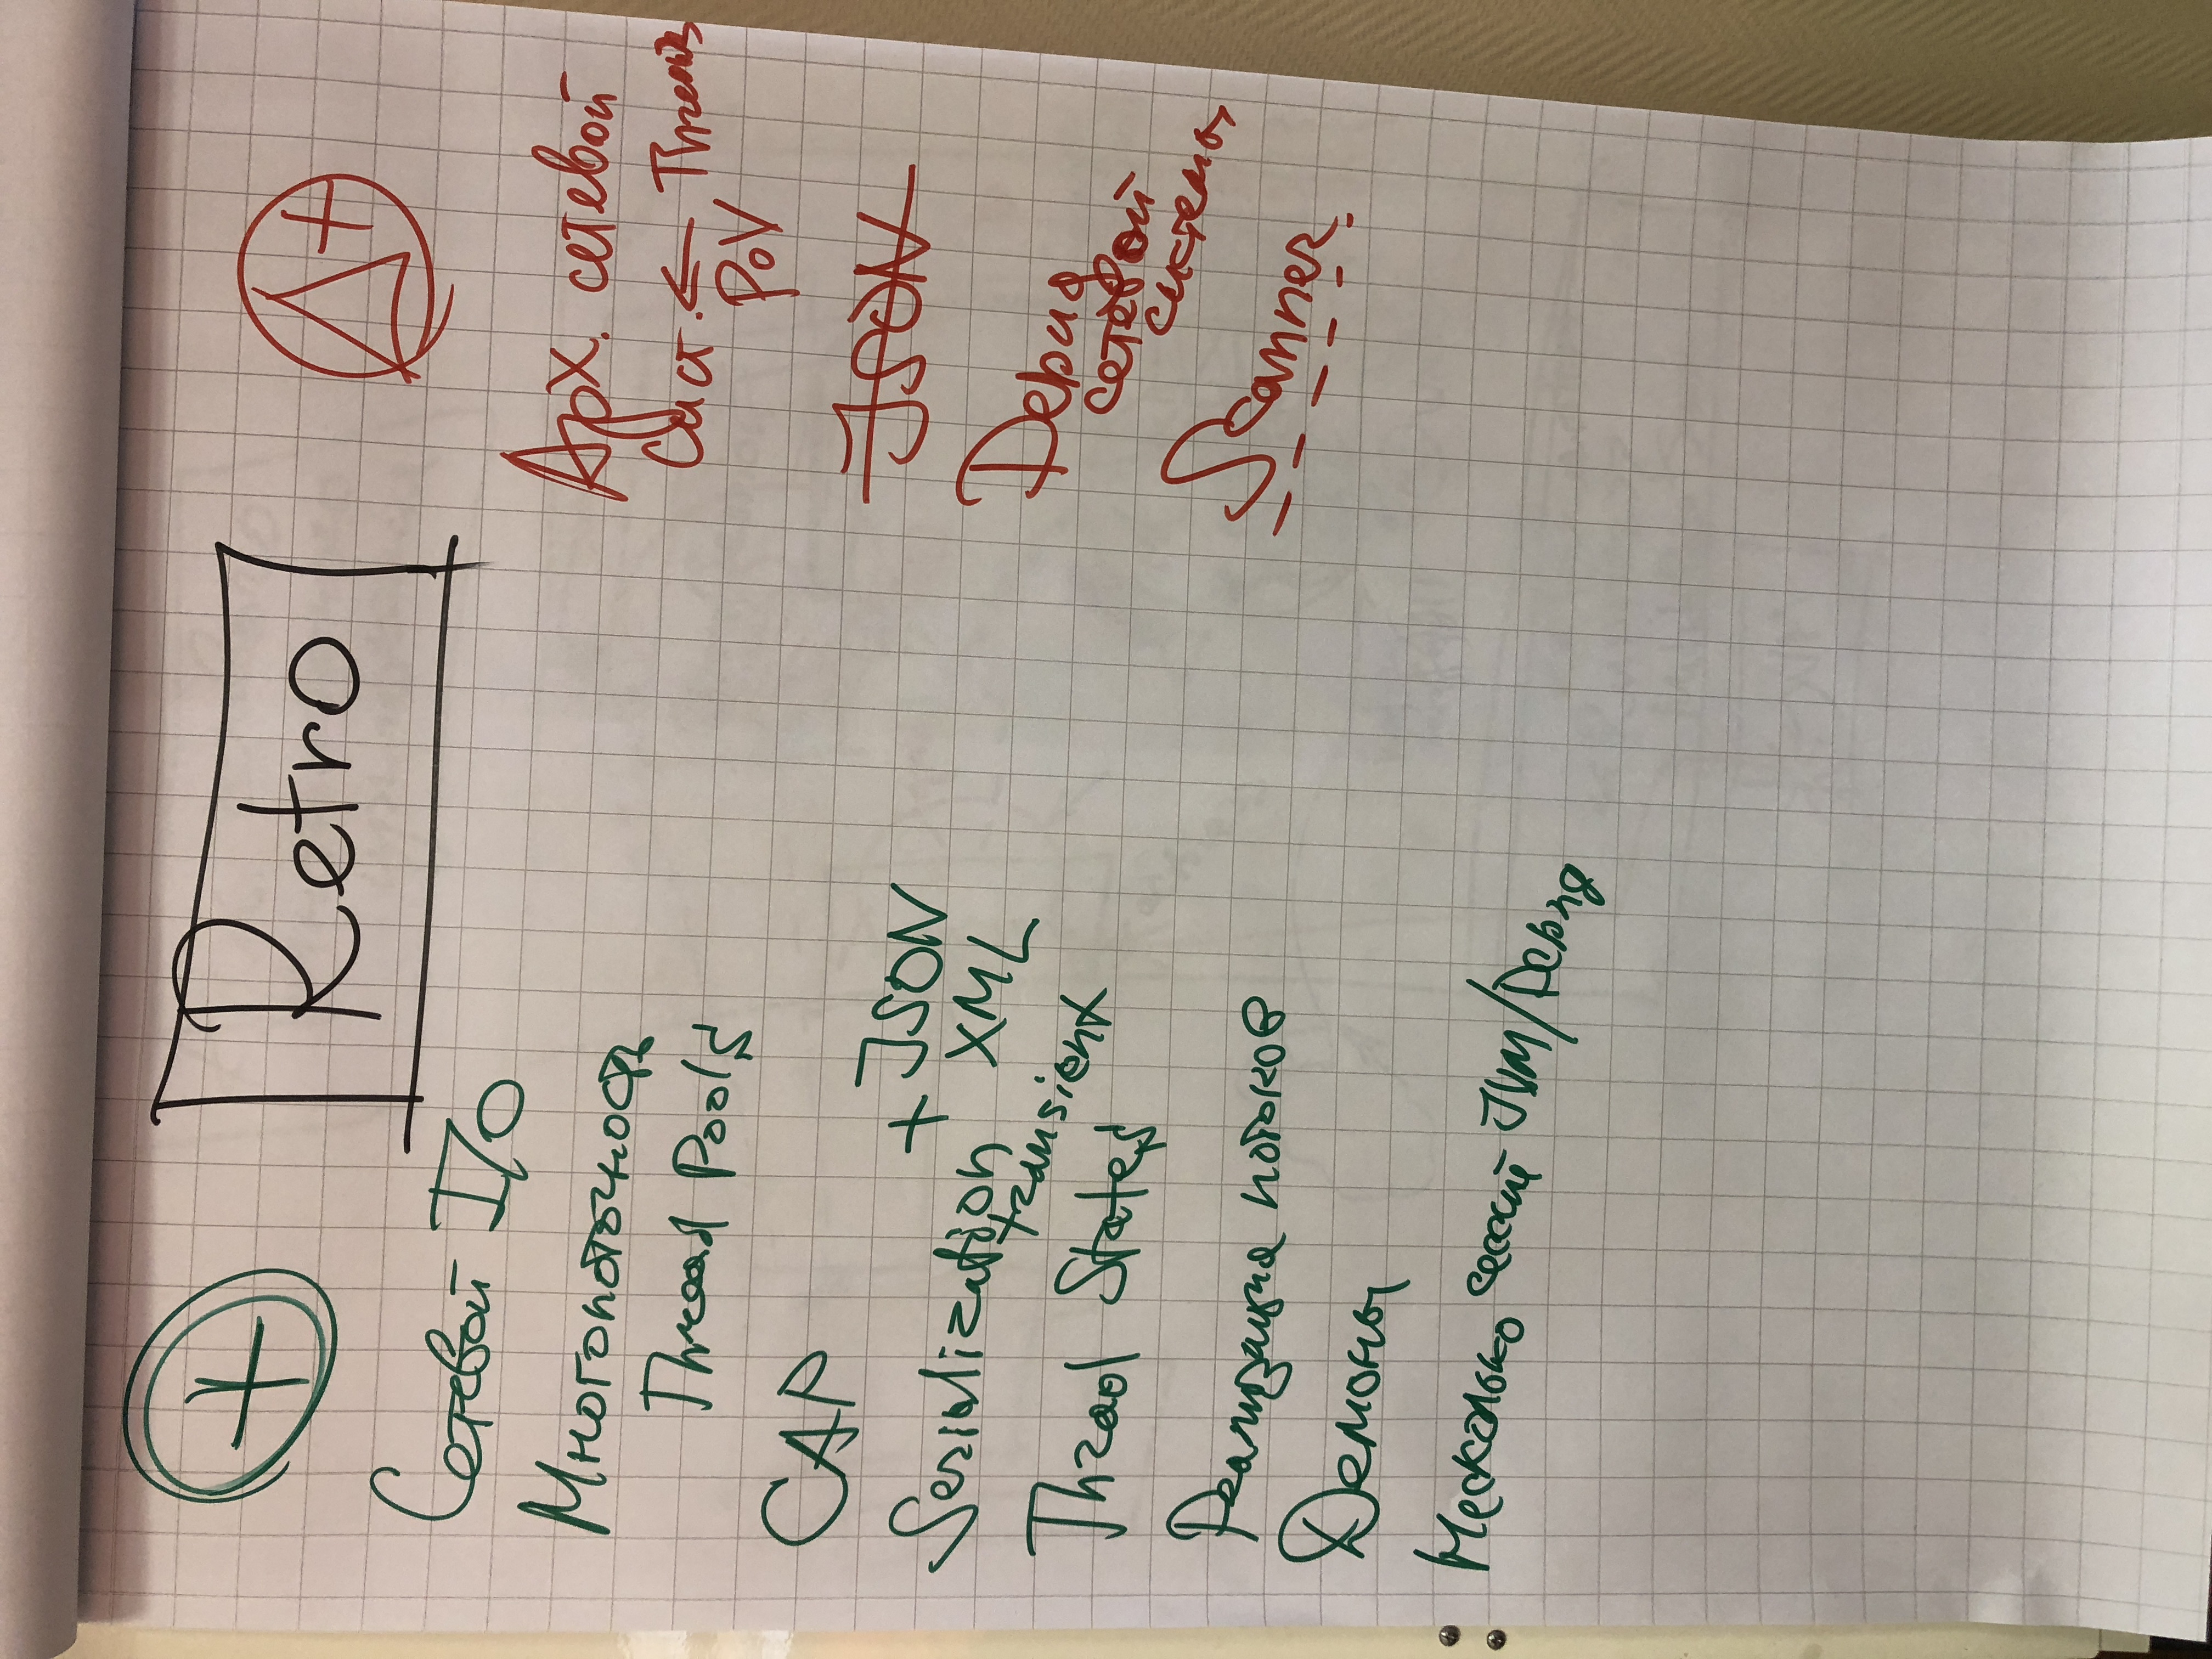 +
Retro
Δ+
Сетевой I/O
Многопоточность
Thread Pools
CAP
+ JSON
Serialization XML
transient
Thread States
Реализация потоков
Демоны
Несколько сессий JVM/Debug
Арх. сетевой
Сист. ← Threads
PoV
JSON
Debug
сетевой
системы
Scanner